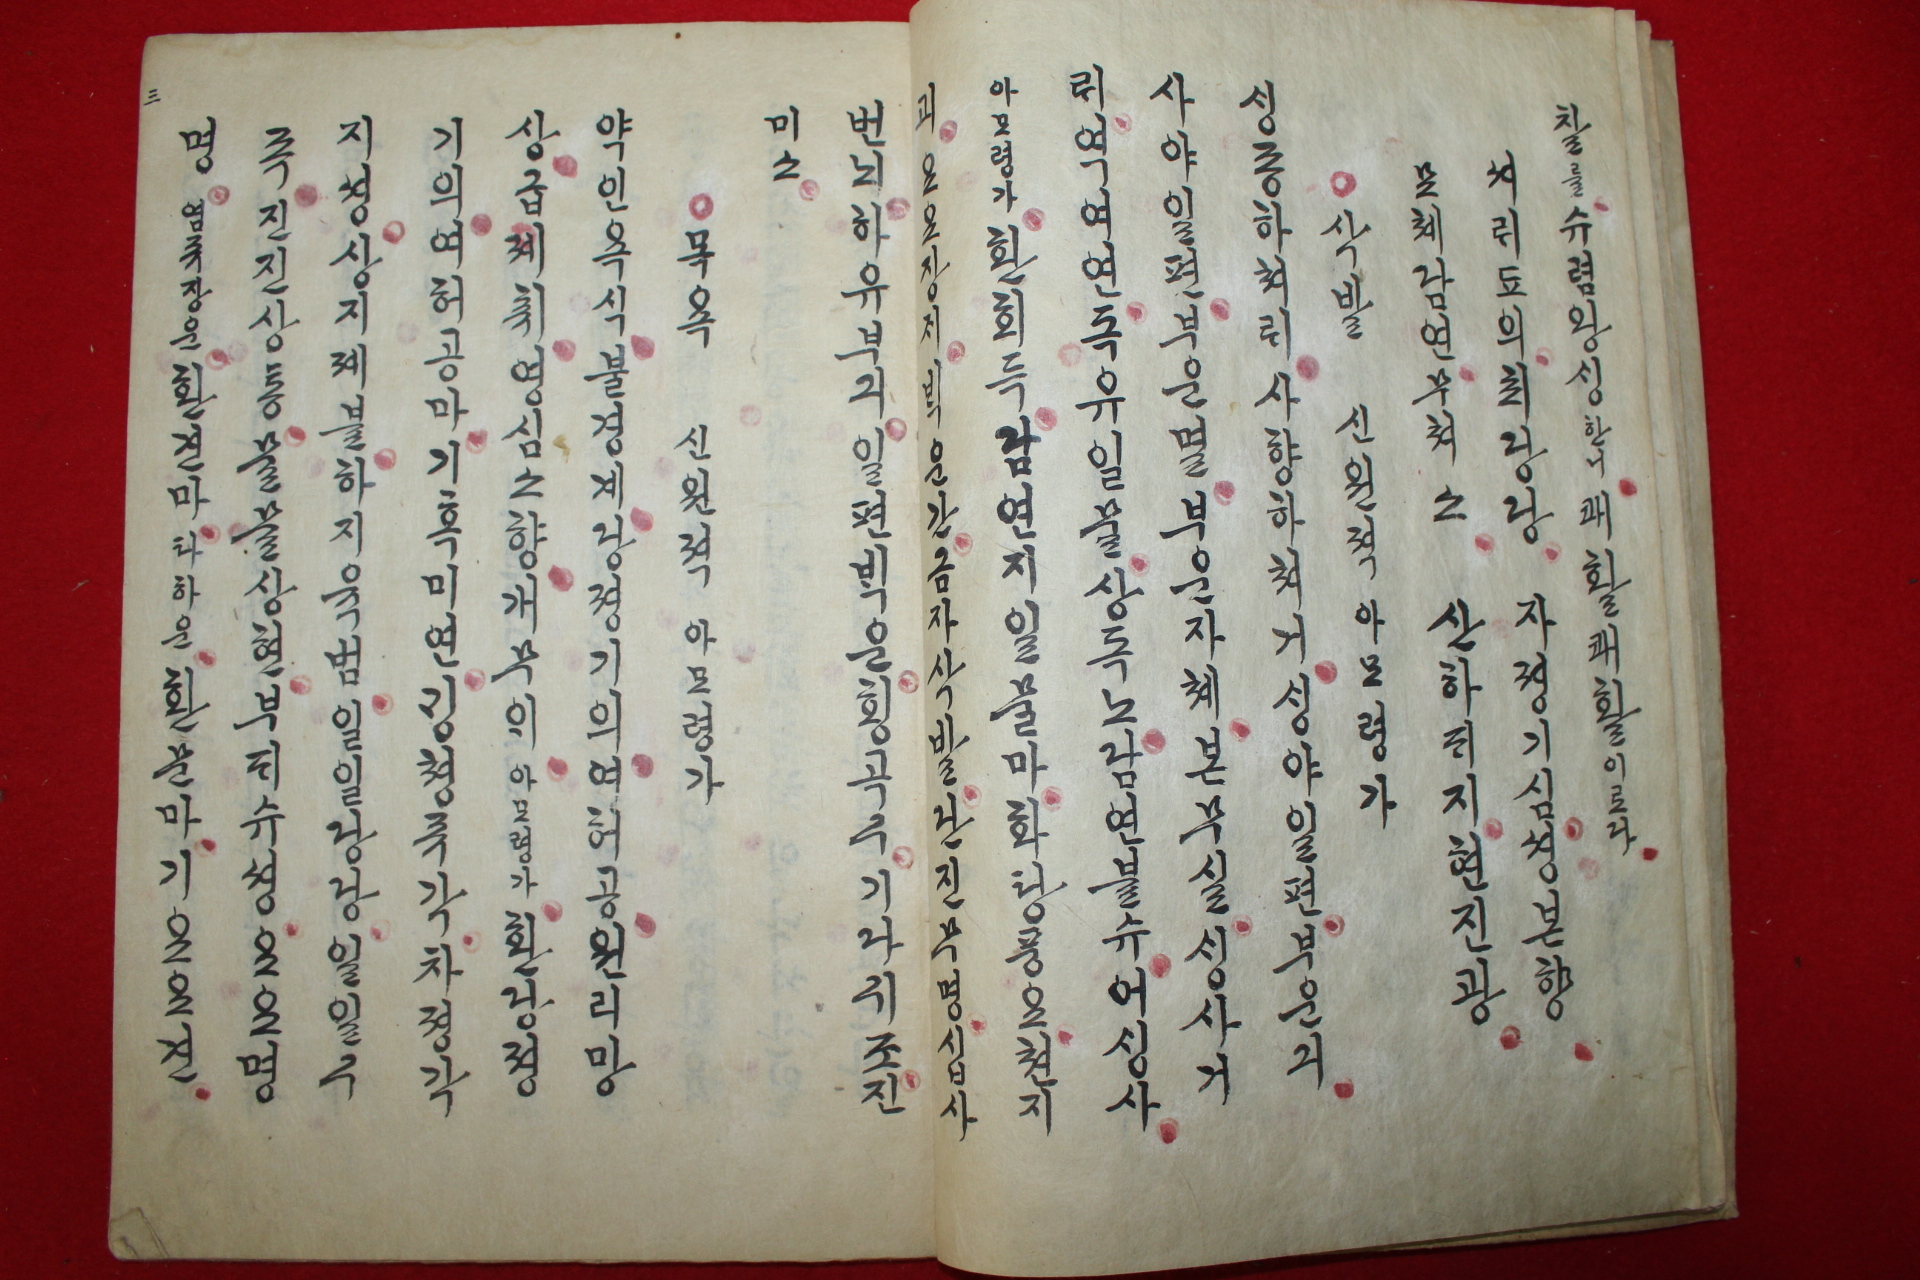 칠를 슈렴왕싱한니 쾌활쾌활이로다
쳐귀도의희랑랑 자졍기심셩본향
모체람연부쳐소 산하듸지현진광
삭발 신원젹 아모령가
싱죵하쳐릭 사향하쳐거 싱야일편부운긔
사야일편부운멸 부운자체본무실 싱사거
릭역여연 독유일물상독노 담연불슈어싱사
아모령가 환회득 담연지일물마 화탕풍요쳔지
괴 요요장재빅운간 금자삭발 단진무명 십사
번뇌 하유부긔 일편빅운횡곡구 기다귀조진
미소
목욕 신원젹 아모령가
약인욕식불경계 당졍기의여허공 원리망
상급졔취 영심소향개무의 아모령가 환당졍
기의여허공마 기혹미연 싱쳥쥬각 차졍각
지셩 상지졔불 하지륙범 일일당당 일일구
죡 진진상통 물물상현 부듸슈셩 요요명
명 염쥬장운 환견마 타하운 환문마 기요요견